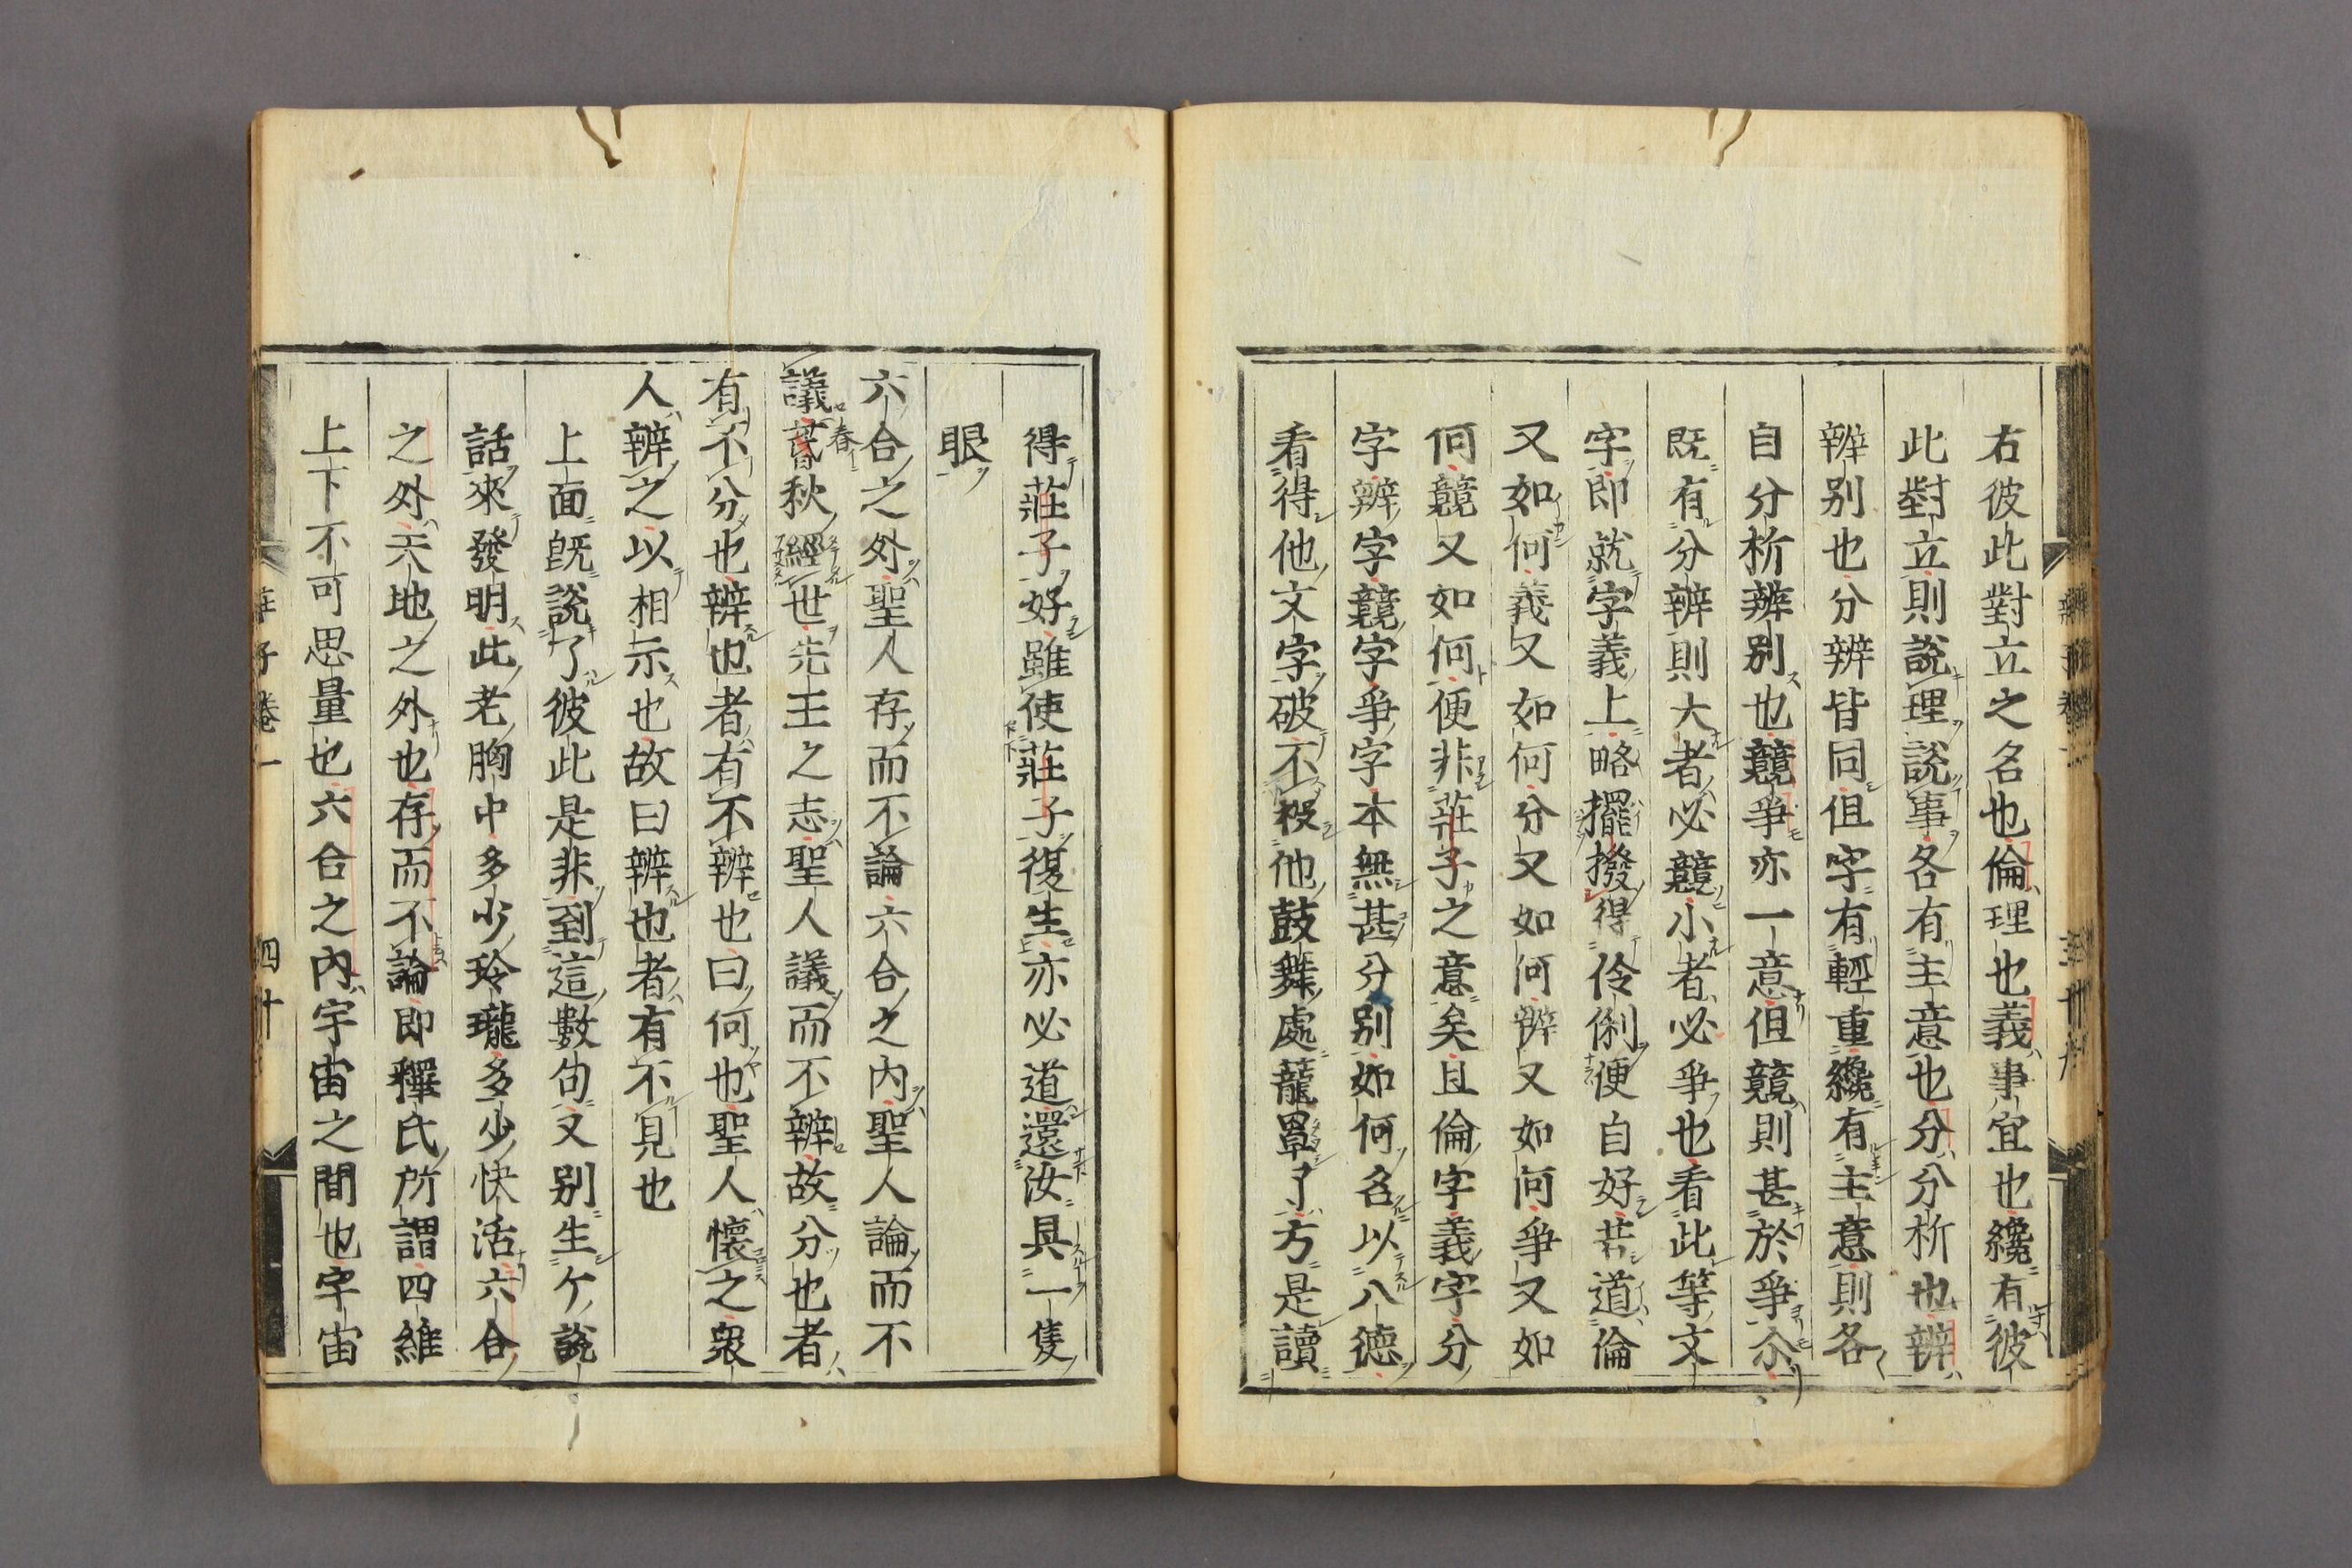 右彼此對立之名也倫理也義事宜也纔有彼
此對立則說理說事各有主意也分分析也辨
辨别也分辨皆同但字有輕重纔有主意則各
自分析辨别也競爭亦一意但競則甚於爭尒
既有分辨則大者必競小者必爭也看此等文
字即就字義上略擺撥得伶俐便自好若道倫
又如何義又如何分又如何辨又如何爭又如
何競又如何便非莊子之意矣且倫字義字分
字辨字競字爭字本無甚分别如何名以八德
看得他文字破不被他鼓舞處籠罩了方是讀
得莊子好雖使莊子復生亦必道還汝具一隻
眼
六合之外聖人存而不論六合之内聖人論而不
議春秋經世先王之志聖人議而不辨故分也者
有不分也辨也者有不辨也曰何也聖人懷之衆
人辨之以相示也故曰辨也者有不見也
上面既說了彼此是非到這數句又别生ケ說
話來發明此老胸中多少玲瓏多少快活六合
之外天地之外也存而不論即釋氏所謂四維
上下不可思量也六合之内宇宙之間也宇宙
莊子卷一 四十